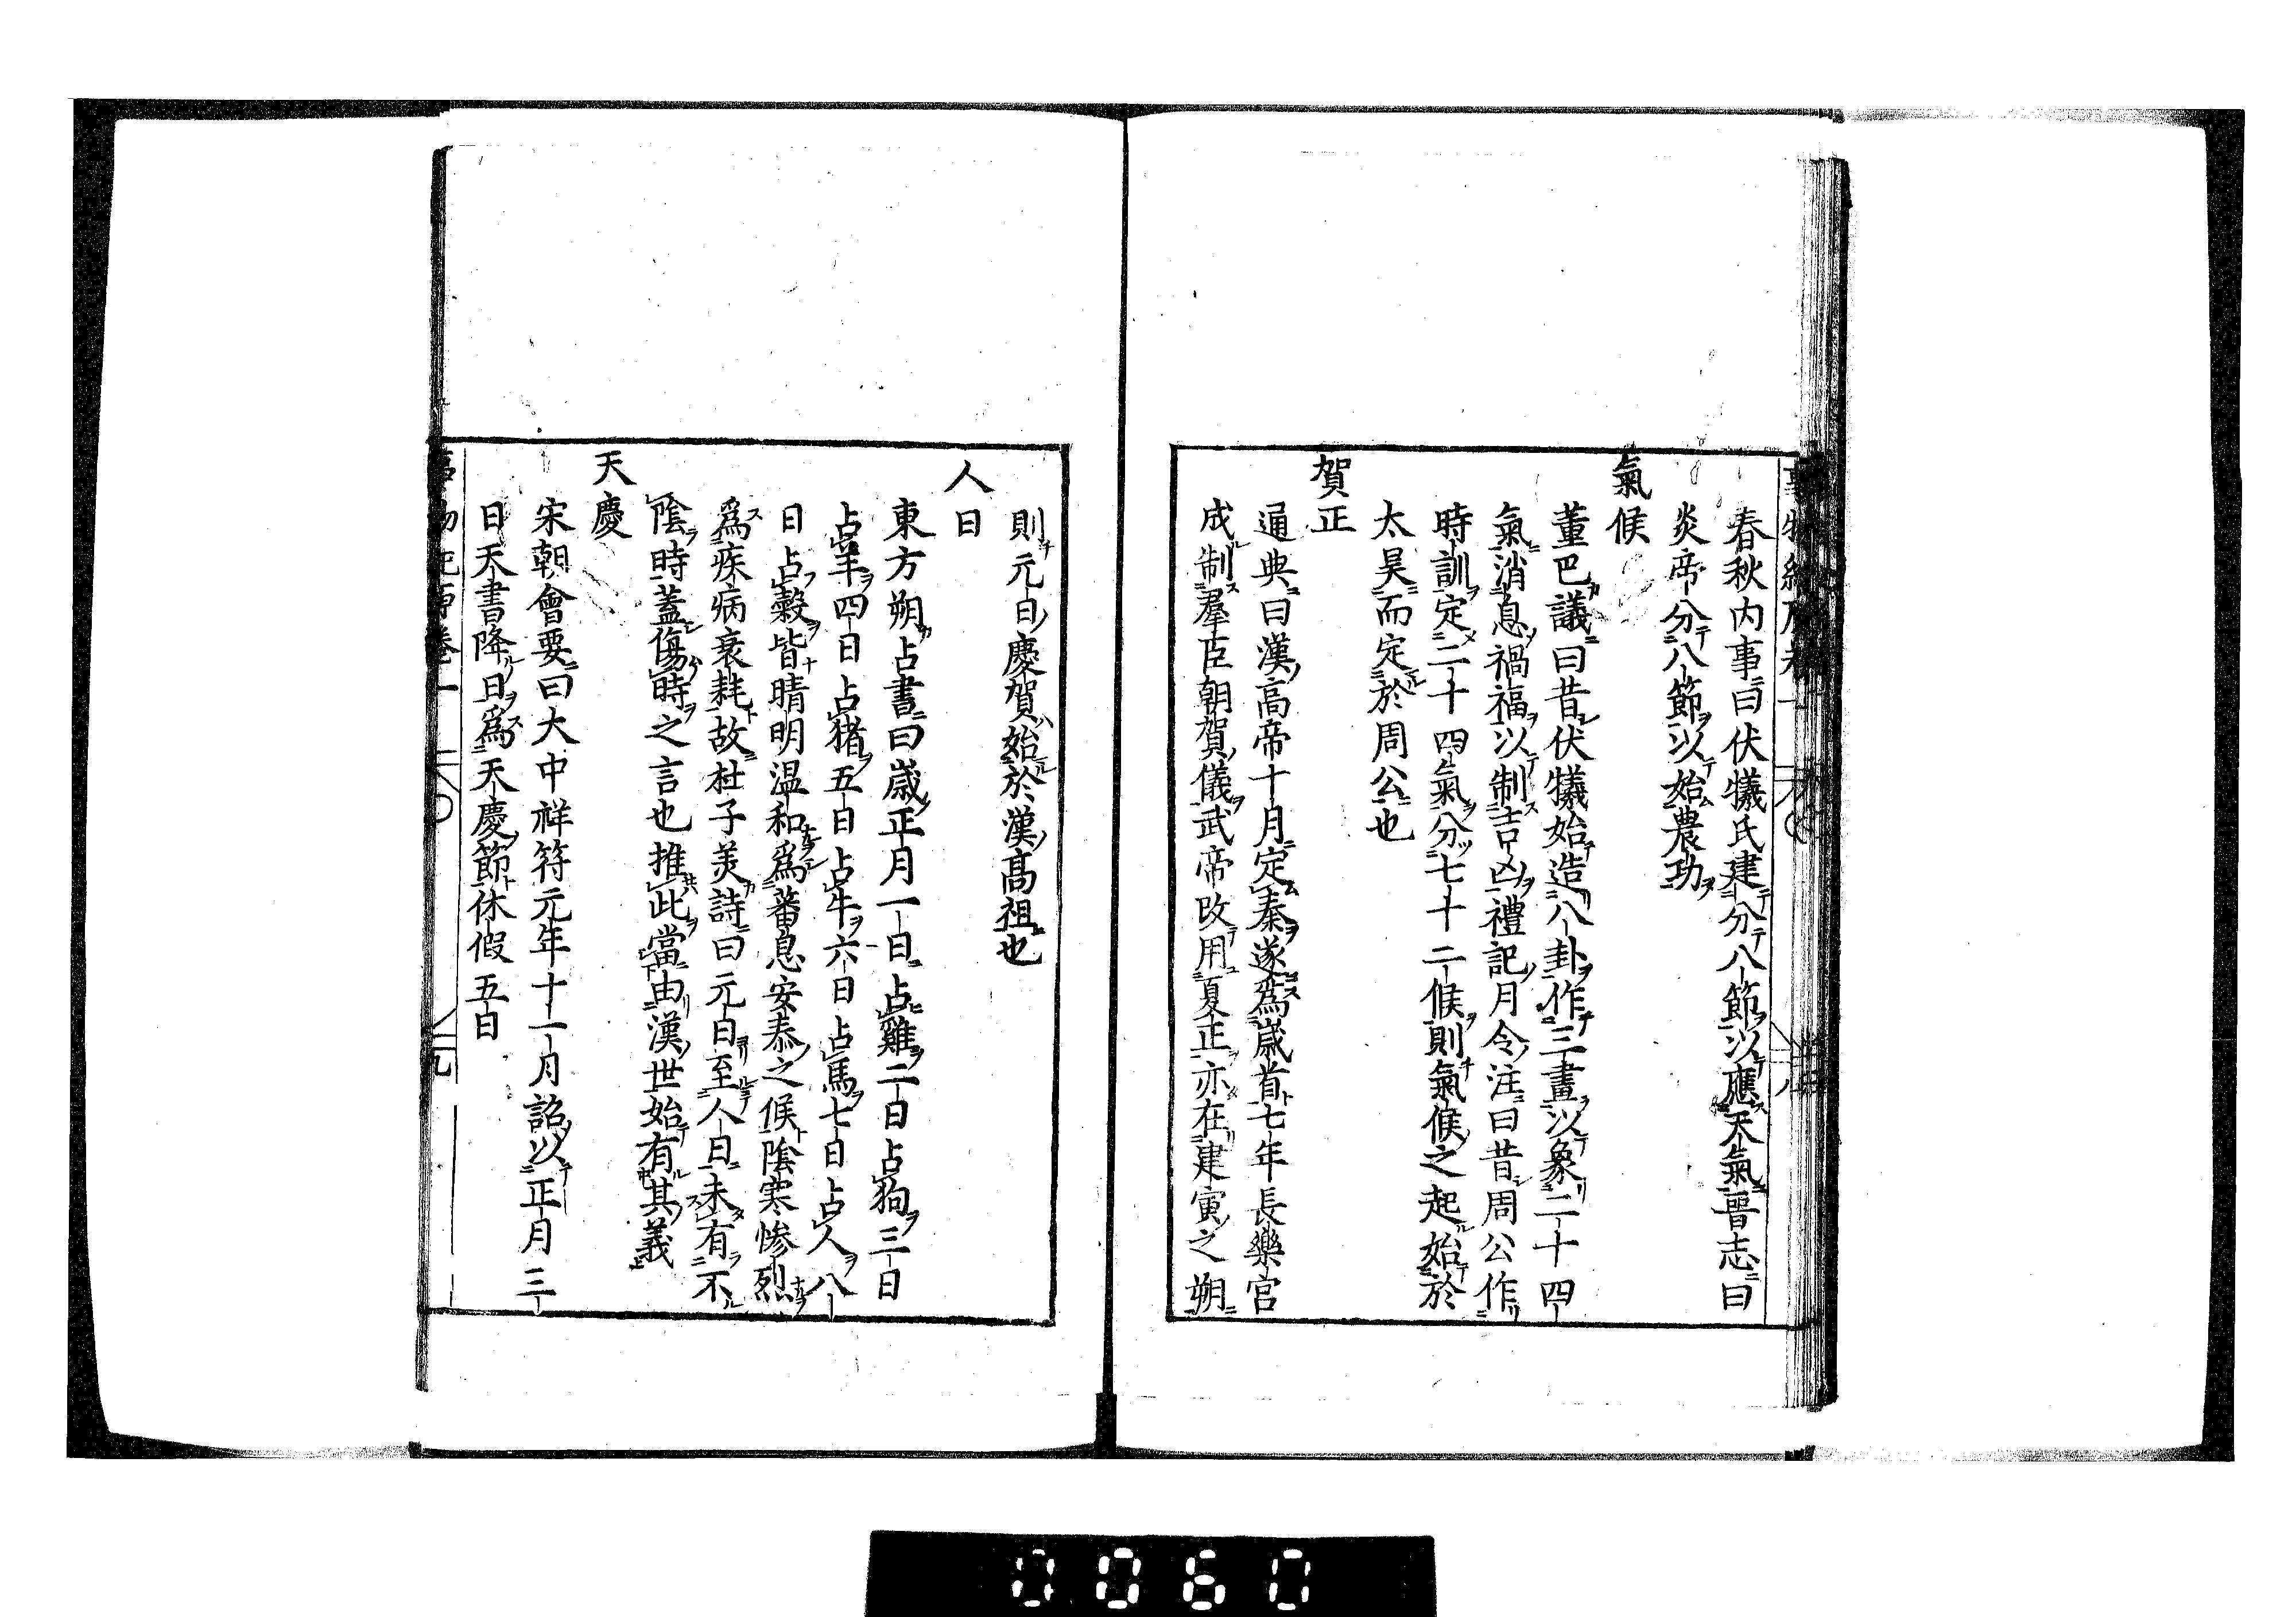 春秋内事曰伏犧氏建分八節以應天氣晉志曰
炎帝分八節以始農功
氣候
董巴議曰昔伏犧始造八卦作三畫以象二十四
氣消息禍福以制吉凶禮記月令注曰昔周公作
時訓定二十四氣分七十二候則氣候之起始於
太昊而定於周公也
賀正
通典曰漢高帝十月定秦遂為歲首七年長樂宮
成制羣臣朝賀儀武帝改用夏正亦在建寅之朔
則元日慶賀始於漢高祖也
人日
東方朔占書曰歲正月一日占雞二日占狗三日
占羊四日占猪五日占牛六日占馬七日占人八
日占穀皆晴明温和為蕃息安泰之候陰寒惨烈
為疾病衰耗故杜子美詩曰元日至人日未有不
陰時蓋傷時之言也推此當由漢世始有其義
天慶
宋朝會要曰大中祥符元年十一月詔以正月三
日天書降日為天慶節休假五日
九
0060